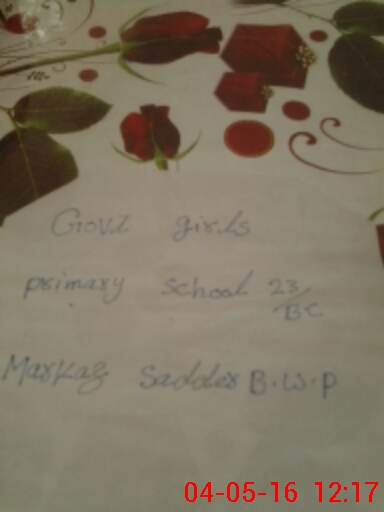 Govt girls
primary school 23/BC
Markaz Sadder B.W.P
04-05-16 12:17